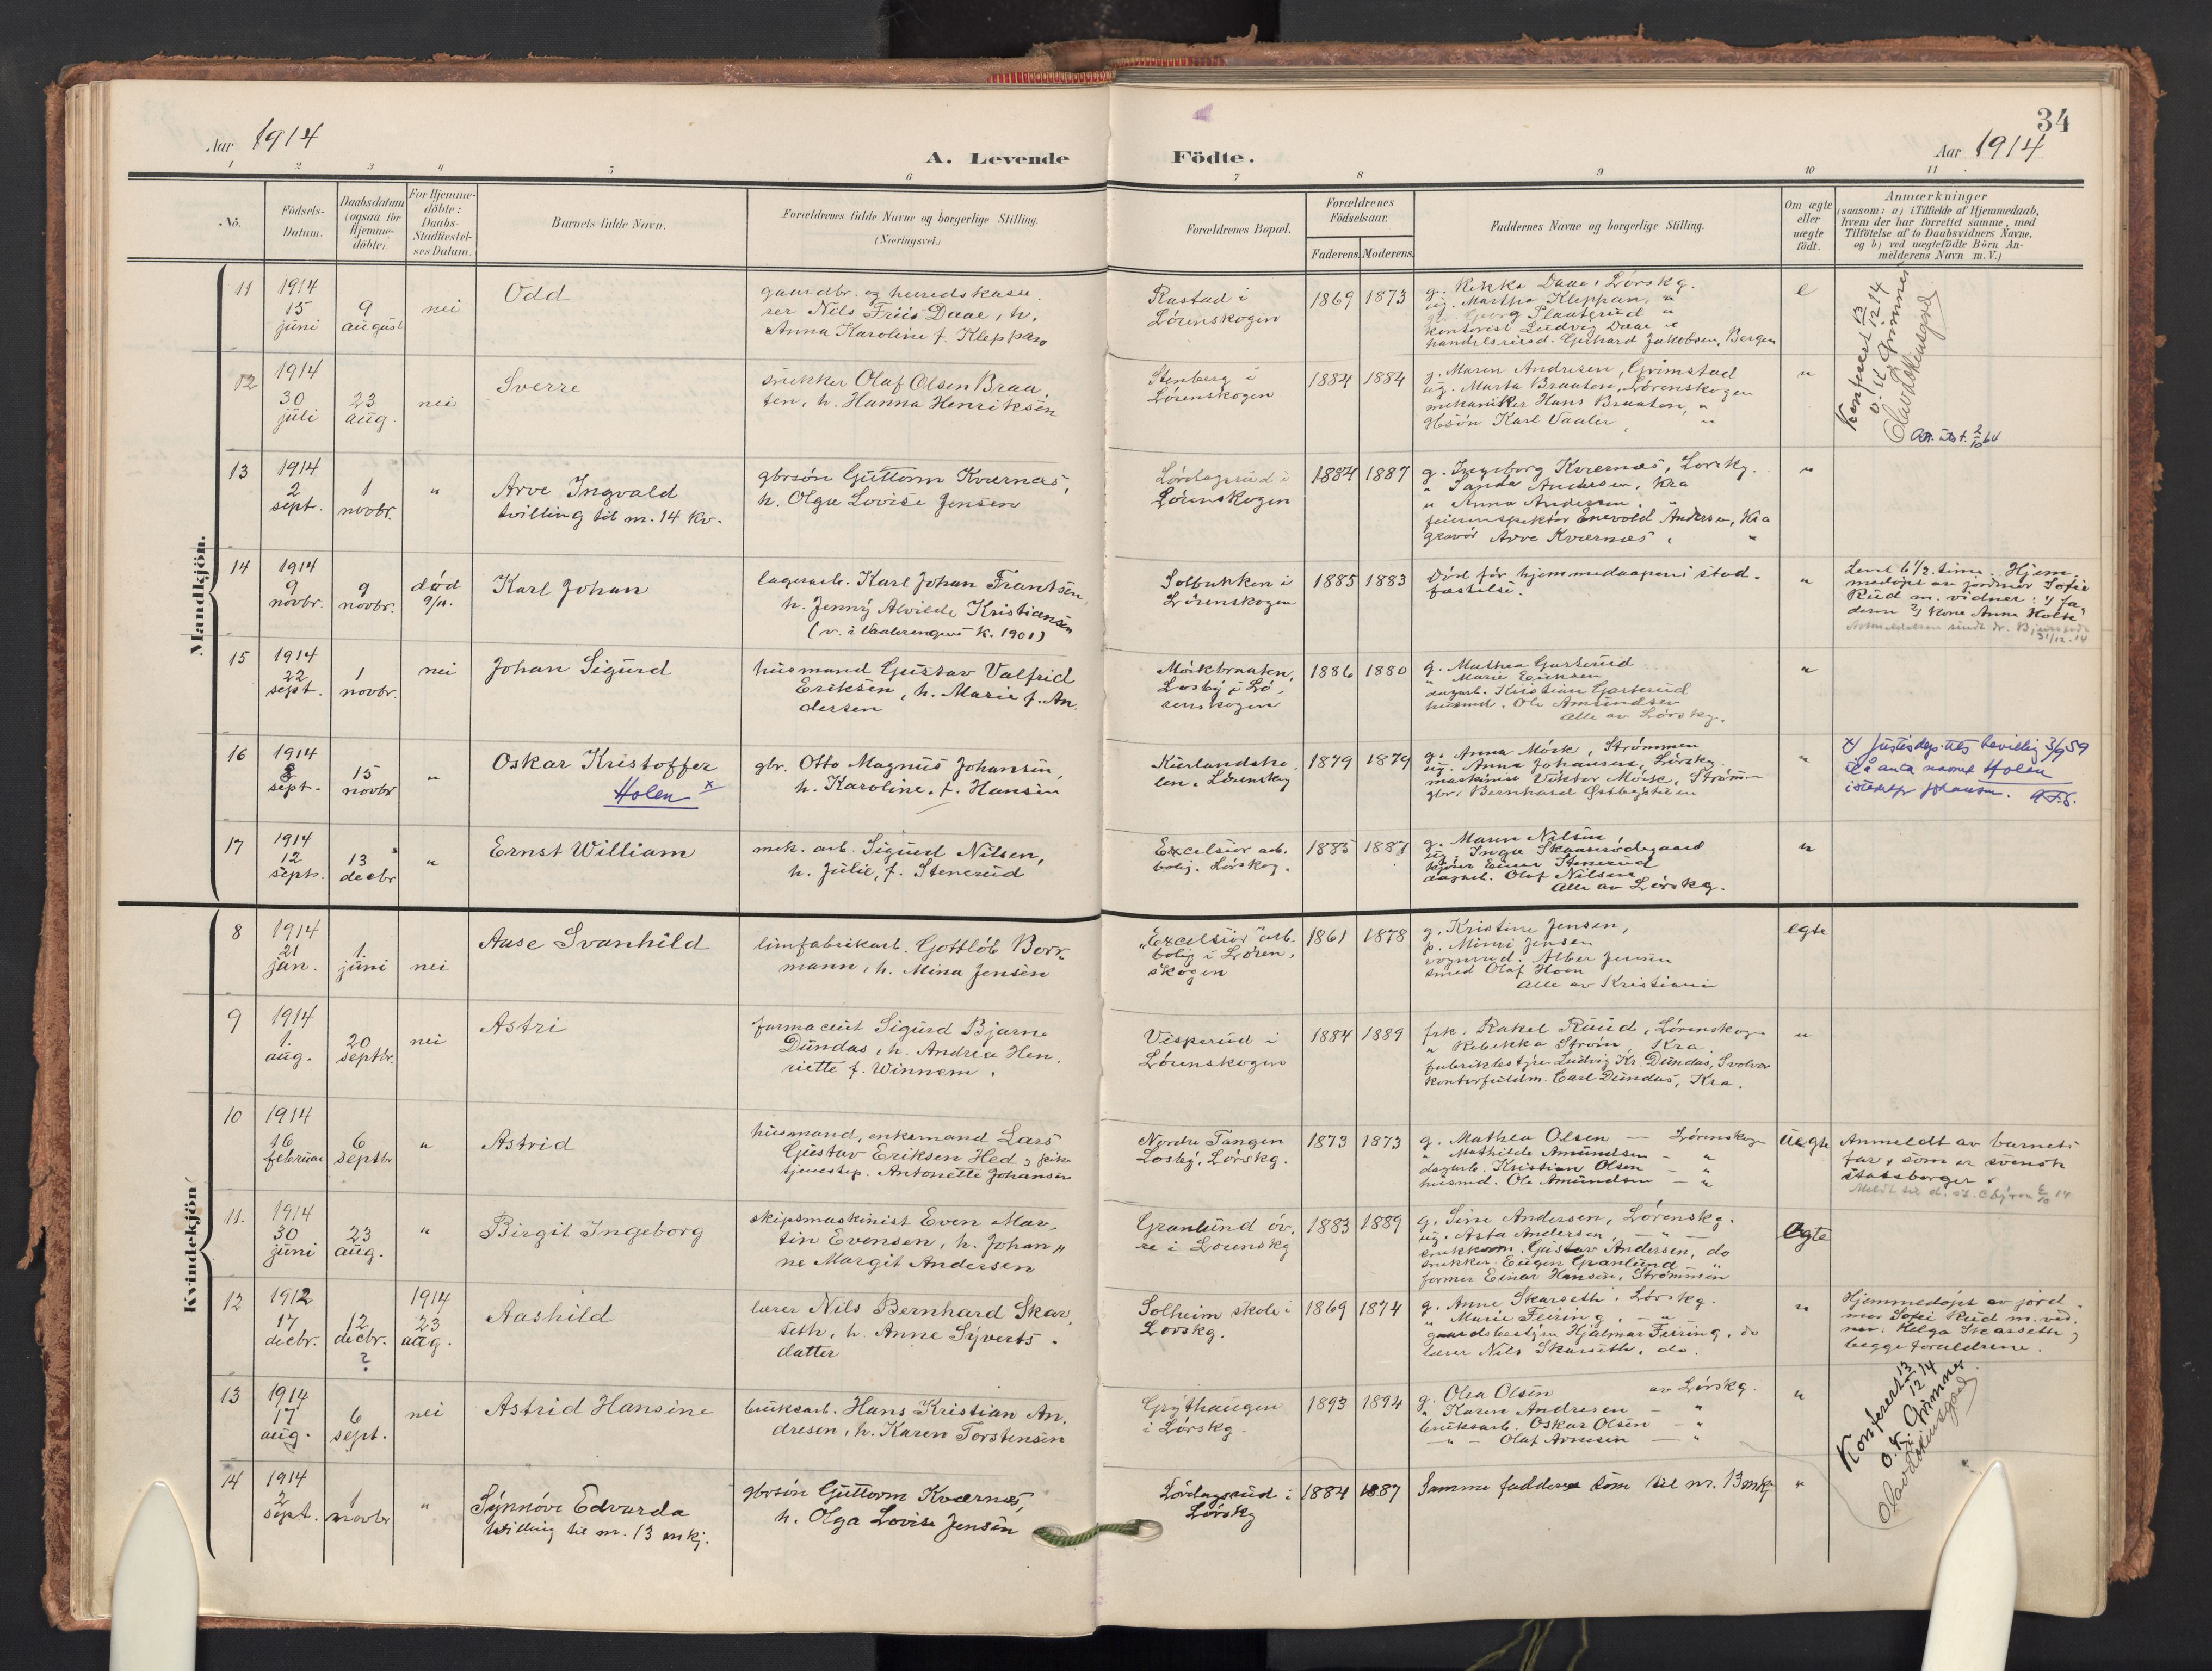 34
Aar 1914
A. Levende Födte.
Aar 1914
1 2 3 4 5 6 7 8 9 10 11
No.
Födsels-
Datum.
Daabsdatum
(ogsaa for
Hjemme-
döbte).
For Hjemme-
döbte:
Daabs-
Stadfæstel-
ses Datum.
Barnets fulde Navn.
Forældrenes fulde Navne og borgerlige Stilling.
(Næringsvei.)
Forældrenes Bopæl.
Forældrenes
Födselsaar.
Faderens. Moderens.
Faddernes Navne og borgerlige Stilling.
Om ægte
eller
uægte
födt.
Anmærkninger
(saasom: a) i Tilfælde af Hjemmedaab,
hvem der har forrettet samme, med
Tilföielse af to Daabsvidners Navne,
og b) ved uægtefödte Börn An-
melderens Navn m. V.)
Mandkjön.
11
1914
15
juni
9
august
nei
Odd
gaardbr. og herredskasse-
rer Nils Friis Daae, h.
Anna Karoline f. Kleppan
Rustad i
Lörenskogen
1869 1873
g. Rekka Daae, Lörskg.
ug. Martha Kleppan, "
Georg Plauterud "
kontorist Ludvig Daae "
handelsreisd. Gerhard Jakobsen, Bergen
e
Konferert 13/12 14
O. K. Grimnes
Olav Lökensgard
12
1914
30
juli
23
aug.
nei
Sverre
snekker Olaf Olsen Braa-
ten, h. Hanna Henriksen
Stenberg i
Lörenskogen
1884 1884
g. Maren Andresen, Grimstad
ug. Marta Braaten, Lörenskogen
mekaniker Hans Braaten, "
Karl Vaaler, "
"
Att. utst. 2/10 64
13
1914
2
sept.
1
novbr.
"
Arve Ingvald
tvilling til nr. 14 kv.
gbrsön Guttorm Kværnæs,
h. Olga Lovise Jensen
Lördagsrud i
Lörenskogen
1884 1887
g. Ingeborg Kværnæs, Lörskg.
" Sanda Andersen, Kra
" Anna Andersen, "
feierinspektör Enevold Andersen, Kra
gravör Arve Kværnæs, "
"
14
1914
9
novbr.
9
novbr.
död
9/11.
Karl Johan
lagerarb. Karl Johan Frantsen,
h. Jenny Alvilde Kristiansen
(v. i Vaalerengens k. 1901)
Solbakken i
Lörenskogen
1885 1883
Död för hjemmedaapens stad-
fæstelse.
"
Levet 6 1/2 time. Hjem-
medöpt av jordmor Sofie
Rud m. vidner: 1/ fa-
deren 2/ kone Anna Holth
31/12.14
15
1914
22
sept.
1
novbr.
nei
Johan Sigurd
husmand Gustav Valfrid
Eriksen, h. Marie f. An-
dersen
Mörkbraaten,
Losby i Lö-
renskogen
1886 1880
g. Mathea Garterud
" Marie Eriksen
dagarb. Kristian Garterud
husmd. Ole Amundsen
alle av Lörskg.
"
16
1914
8
sept.
15
novbr
"
Oskar Kristoffer
Holen x
gbr. Otto Magnus Johansen,
h. Karoline, f. Hansen
Kurlandsho-
len, Lörenskg
1879 1879
g. Anna Mörk, Strömmen
ug. Anna Johansen, Lörskg.
maskinist Viktor Mörk, Strömm
gbr. Bernhard Östbystuen
"
x) Justisdep.tets bevillig 3/9 59
til å anta navnet Holen
istedetfor Johansen.
17
1914
12
septr.
13
decbr
"
Ernst William
mek. arb. Sigurd Nilsen,
h. Julie, f. Stenerud
Excelsior arb.
bolig. Lörskg.
1885 1887
g. Maren Nilsen,
ug. Inga Skaarsödegaard
Einar Stenerud
dagarb. Olaf Nilsen
Alle av Lörskg.
"
Kvindekjön
8
1914
21
jan.
1.
juni
nei
Aase Svanhild
limfabrikarb. Gottlob Borr-
mann, h. Mina Jensen
"Excelsior" arb.
bolig i Lören-
skogen
1861 1878
g. Kristine Jensen,
p. Mimi Jensen
vognmd. Albert Jensen
smed Olaf Hoen
Alle av Kristiania
egte
9
1914
1.
aug.
20
septbr.
nei
Astri
farmaceut Sigurd Bjarne
Dundas, h. Andrea Hen-
riette f. Winnem.
Visperud i
Lörenskogen
1884 1889
frk. Rakel Ruud, Lörenskogen
" Rebekka Ström, Kra
fabrikbestyrer Ludvig Kr. Dundas, Svolvær
kontorfuldm. Carl Dundas, Kra.
"
10
1914
16
februar
6
septbr
"
Astrid
husmand, enkemand Lars
Gustav Eriksen Hed og pike
tjenestep. Antonette Johansen
Nordre Tangen
Losby, Lörskg.
1873 1873
g. Mathea Olsen — Lörenskogen
" Mathilde Amundsen — "
dagarb. Kristian Olsen — "
husmd. Ole Amundsen — "
uegte
Anmeldt av barnets
far, som er svensk
statsborger.
11.
1914
30
juni
23
aug.
"
Birgit Ingeborg
skipsmaskinist Even Mar-
tin Evensen, h. Johan-
ne Margit Andersen
Granlund öv-
re i Lörenskg
1883 1889
g. Sine Andersen, Lörenskg.
ug. Asta Andersen, — " —
snekkerm. Gustav Andersen, do
snekker Eugen Granlund "
former Einar Hansen, Strömmen
egte
12
1912
17
decbr.
12
decbr.
?
1914
23
aug.
Aashild
lærer Nils Bernhard Skar-
seth, h. Anne Syverts-
datter
Solheim skole i
Lörskg.
1869 1874
g. Anne Skarseth, Lörskg.
" Marie Feiring, — " —
gaardsbestyrer Hjalmar Feiring, do
lærer Nils Skarseth, do.
"
Hjemmedöpt av jord-
mor Sofie Rud m. vid-
ner: Helga Skarseth,
begge forældrene.
13
1914
17
aug.
6
sept.
nei
Astrid Hansine
bruksarb. Hans Kristian An-
dresen, h. Karen Torstensen
Grythaugen
i Lörskg.
1893 1894
g. Olea Olsen av Lörskg.
" Karen Andresen — "
bruksarb. Oskar Olsen — "
— " — Olaf Arnesen — "
"
Konferert 13/12 14
O. K. Grimnes
Olav Lökensgard
14
1914
2
sept.
1
novbr
"
Synnöve Edvarda
tvilling til nr. 13 mkj.
gbrsön Guttorm Kværnæs,
h. Olga Lovise Jensen
Lördagsrud i
Lörskg
1884 1887
Samme faddere som til nr. 13 mkj
"